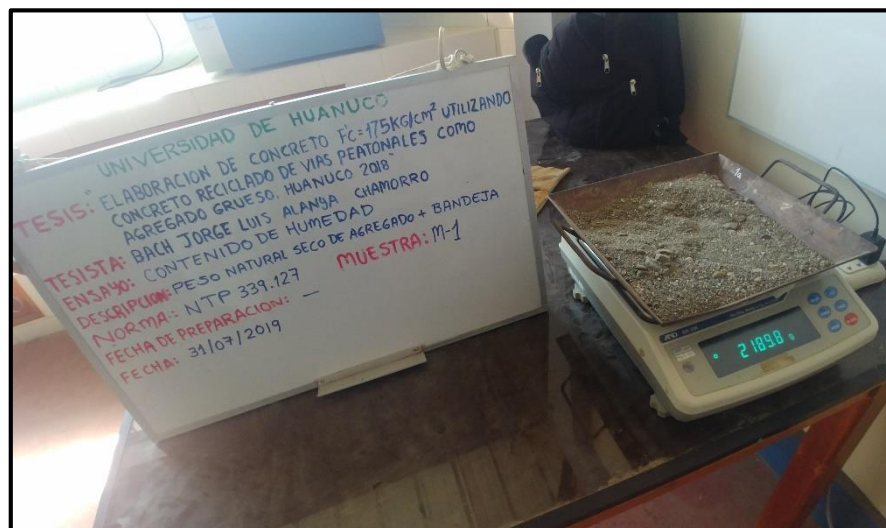 UNIVERSIDAD DE HUANUCO
TESIS: "ELABORACION DE CONCRETO F'C=175KG/CM² UTILIZANDO
CONCRETO RECICLADO DE VIAS PEATONALES COMO
AGREGADO GRUESO. HUANUCO 2018"
TESISTA: BACH JORGE LUIS ALANYA CHAMORRO
ENSAYO: CONTENIDO DE HUMEDAD
DESCRIPCION: PESO NATURAL SECO DE AGREGADO + BANDEJA
NORMA: NTP 339.127 MUESTRA: M-1
FECHA DE PREPARACION: —
FECHA: 31/07/2019
AND
2189.8 g